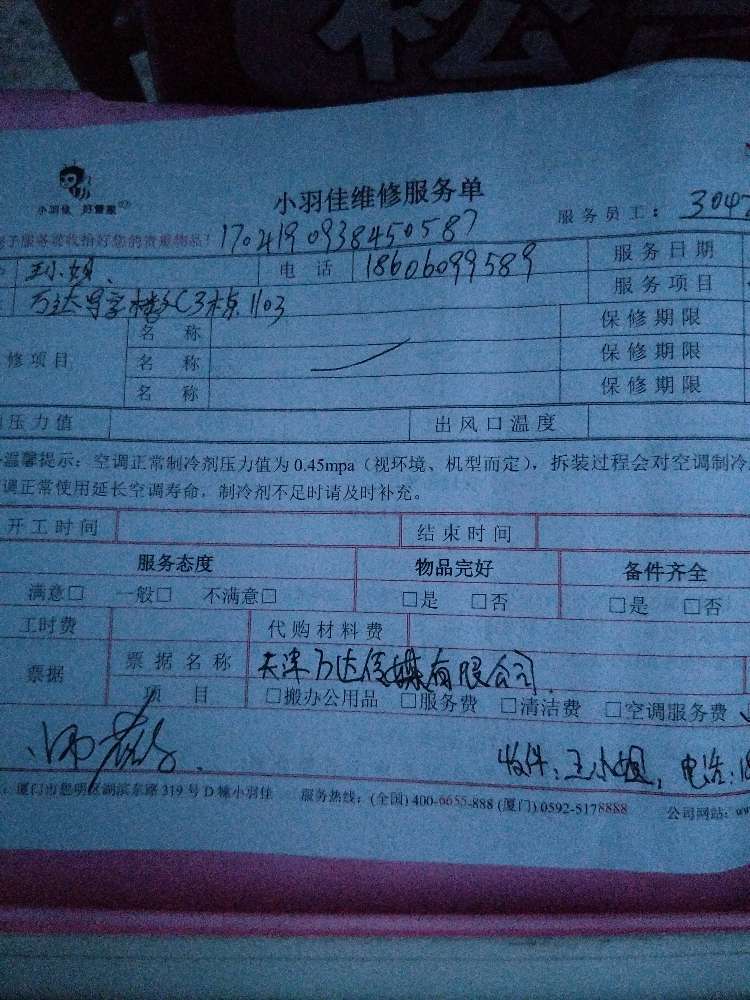 小羽佳 好管家
小羽佳维修服务单
服务员工: 3047
服务就收拾好您的贵重物品! 170419093845 0587
王小姐 电话 18606099589 服务日期
万达写字楼C3栋1103 服务项目
修项目 名称 保修期限
名称 保修期限
名称 保修期限
压力值 出风口温度
温馨提示: 空调正常制冷剂压力值为 0.45mpa (视环境、机型而定), 拆装过程会对空调制冷
调正常使用延长空调寿命, 制冷剂不足时请及时补充。
开工时间 结束时间
服务态度 物品完好 备件齐全
满意□ 一般□ 不满意□ □是 □否 □是 □否
工时费 代购材料费
票据 票据名称 天津万达传媒有限公司
项目 □搬办公用品 □服务费 □清洁费 □空调服务费
收件: 王小姐, 电话: 18
厦门市思明区湖滨东路 319 号 D 栋小羽佳 服务热线: (全国) 400-6655-888 (厦门) 0592-5178888 公司网站: